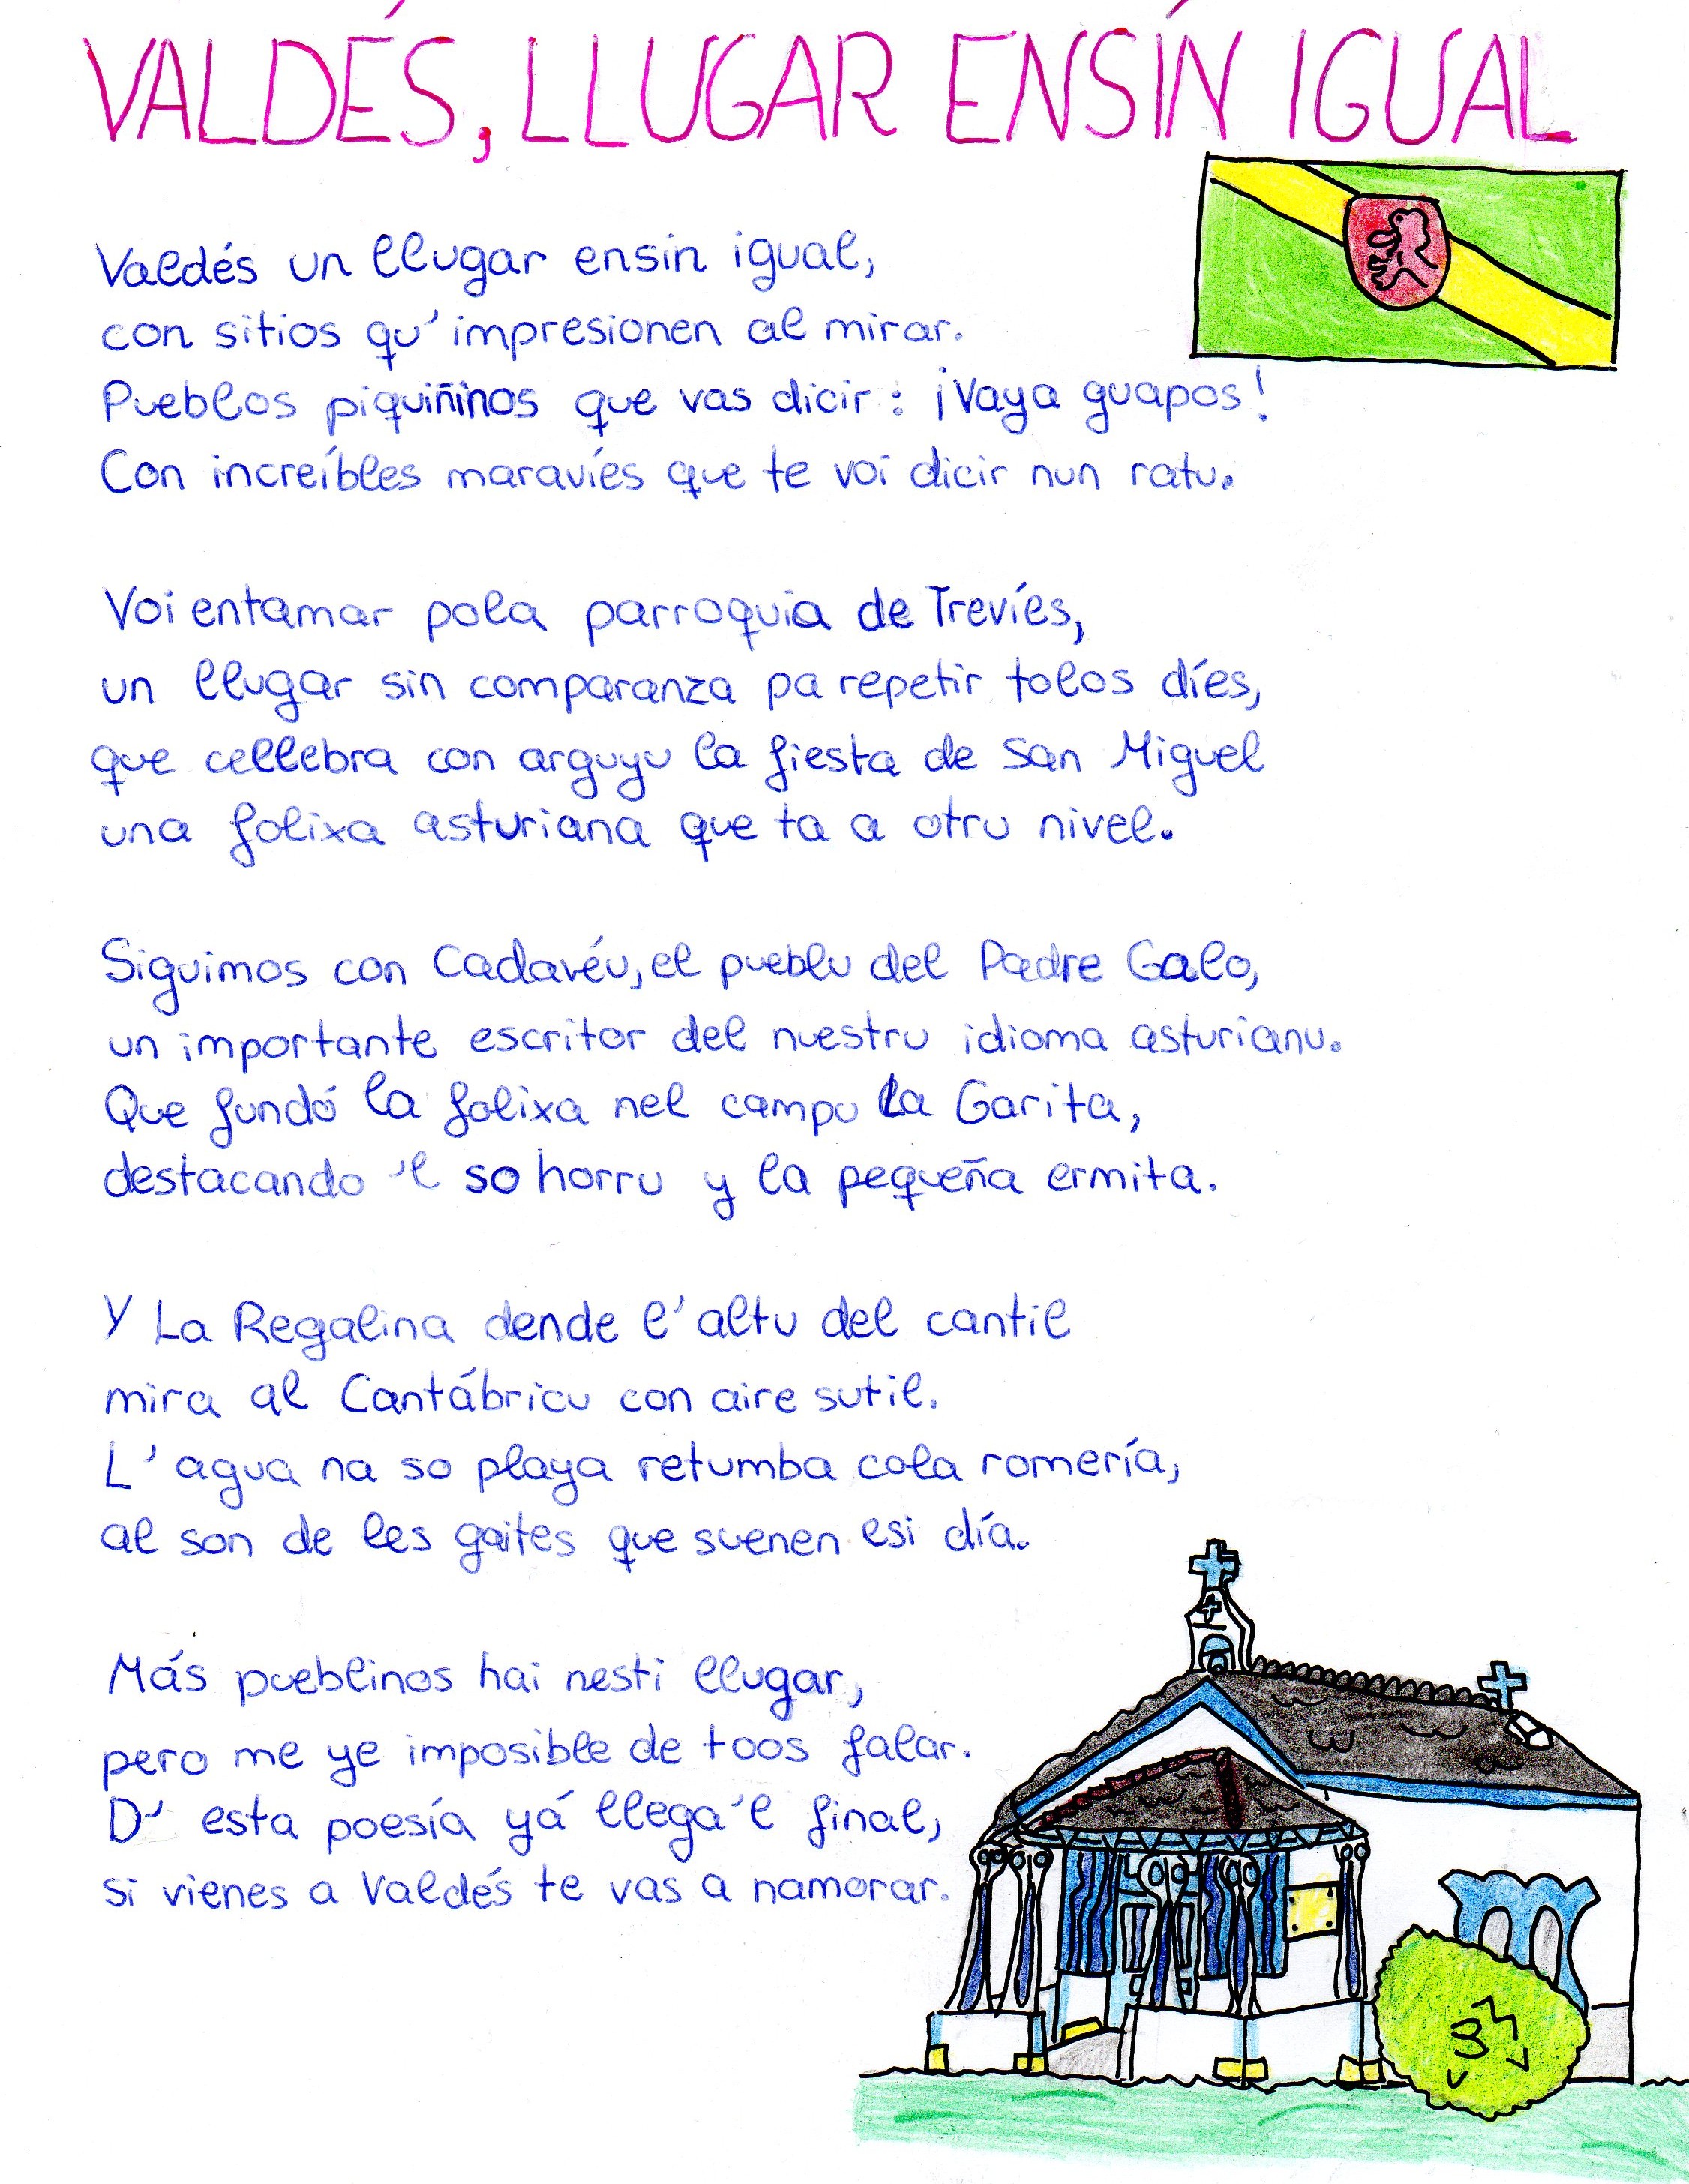 VALDÉS, LLUGAR ENSÍN IGUAL
Valdés un llugar ensin igual,
con sitios qu'impresionen al mirar.
Pueblos piquiñinos que vas dicir: ¡Vaya guapos!
Con increíbles maravíes que te voi dicir nun ratu.
Voi entamar pola parroquia de Trevíes,
un llugar sin comparanza pa repetir tolos díes,
que cellebra con arguyu la fiesta de San Miguel
una folixa asturiana que ta a otru nivel.
Siguimos con Cadavéu, el pueblu del Padre Galo,
un importante escritor del nuestru idioma asturianu.
Que fundó la folixa nel campu La Garita,
destacando 'l so horru y la pequeña ermita.
Y La Regalina dende l'altu del cantil
mira al Cantábricu con aire sutil.
L'agua na so playa retumba cola romería,
al son de les gaites que suenen esi día.
Más pueblinos hai nesti llugar,
pero me ye imposible de toos falar.
D'esta poesía yá llega'l final,
si vienes a Valdés te vas a namorar.